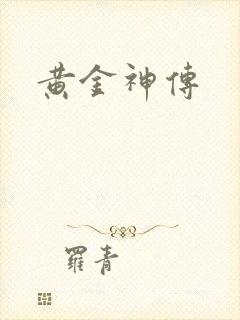 黄金神傳
羅青